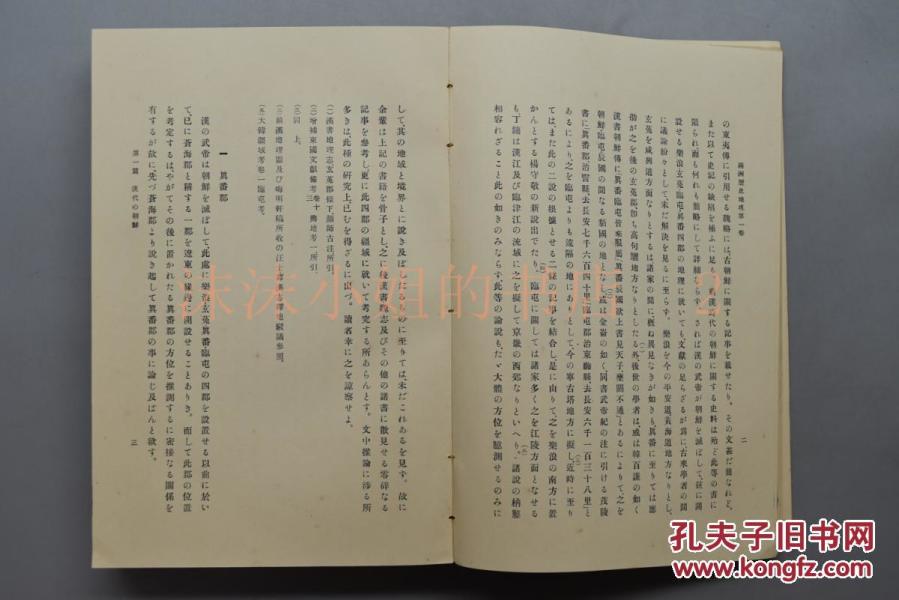 滿洲歷史地理第一卷
二
の東夷傳に引用せる魏略には、古朝鮮に關する記事を載せたり。その文甚だ簡なれど、
また以て史記の缺陷を補ふに足る。前漢時代の朝鮮に關する史料は殆ど此等の書に
限られ、而も何れも簡略にして詳細ならず。されば漢の武帝が朝鮮を滅ぼして、玆に開
設せる樂浪玄菟臨屯眞番四郡の地理に就いても文獻の足らざるが爲に古來學者の間
に議論紛々として未だ解決を見るに至らず。樂浪を今の平安道黃海道地方なりとし、
玄菟を咸興道方面なりとするは諸家の間に、概ね異見なきが如きも、眞番に至りては應
劭が之を玄菟郡、卽ち高句驪地方なりとしたる外、後世の學者は、或は韓百謙の如く
漢書朝鮮傳に「眞番臨屯皆來服屬」「眞番辰國欲上書見天子、雍閼不通」とあるによりて、之を
朝鮮臨屯辰國の間なる貊國の地となし、或は金崙の如く、同書武帝紀の注に引ける茂陵
書に「眞番郡治霅縣、去長安七千六百四十里、臨屯郡治東暆縣、去長安六千一百三十八里」と
あるにより、之を臨屯よりも遠隔の地にありとして、今の寧古塔地方に擬し、近時に至り
ては、また此の二說の根據とせる二樣の記事を結合し、是に由りて、之を樂浪の南方に置
かんとする楊守敬の新說出でたり。臨屯に關しては諸家多く之を江陵方面となせる
も、丁鏞は漢江及び臨津江の流域に之を擬して京畿の西郊なりといへり。諸說の枘鑿
相容れざること此の如きのみならず、此等の論說も、たゞ大體の方位を臆測せるのみに
して、其の地域と境界とに說き及ぼしたるものに至りては、未だこれあるを見ず。故に
余輩は上記の書籍を骨子とし、之に後漢書魏志及びその他の諸書に散見せる零碎なる
記事を參考し、更に此四郡の疆域に就いて考究する所あらんとす。文中推論に涉る所
多きは、此種の研究上、已むを得ざるに出づ。讀者幸に之を諒察せよ。
(一)漢書地理志玄菟郡條下顏師古注所引。
(二)增補東國文獻備考卷十三輿地考一所引。
(三)同 上。
(四)前漢地理圖及び晦明軒稿所收の汪士鐸
(五)大韓疆域考卷一臨屯考。
一 眞番郡
漢の武帝は朝鮮を滅ぼして、此處に樂浪玄菟眞番臨屯の四郡を設置せる以前に於い
て、已に蒼海郡と稱する一郡を遼東の緣邊に開設せることありき。而して此郡の位置
を考定するは、やがてその後に置かれたる眞番郡の方位を推測するに密接なる關係を
有するが故に、先づ蒼海郡より說き起して眞番郡の事に論じ及ばんと欲す。
第一篇 漢代の朝鮮
三
沫沫小姐的书店 2
孔夫子旧书网
www.kongfz.com